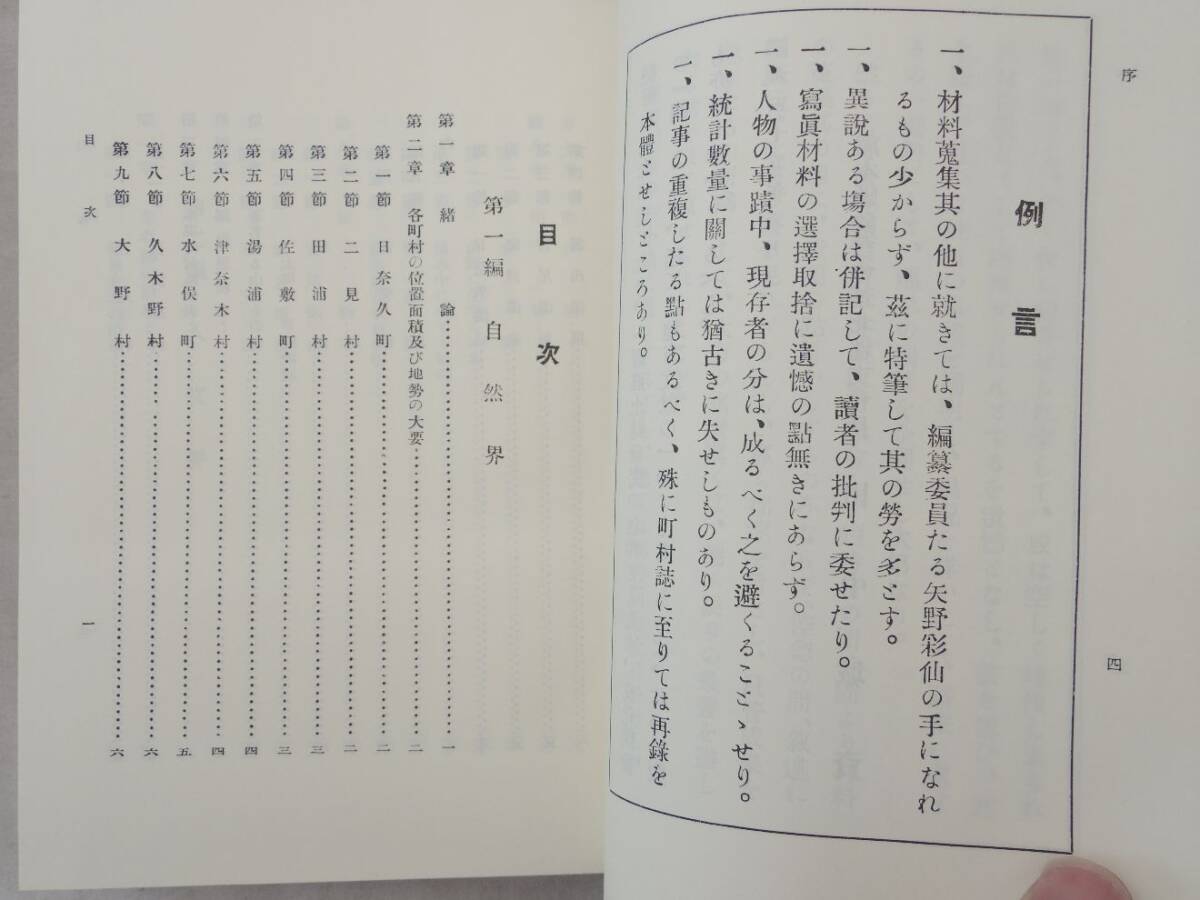 序
例言
一、材料蒐集其の他に就きては、編纂委員たる矢野彩仙の手になれ
るもの少からず、茲に特筆して其の勞を多とす。
一、異説ある場合は併記して、讀者の批判に委せたり。
一、寫眞材料の選擇取捨に遺憾の點無きにあらず。
一、人物の事蹟中、現存者の分は、成るべく之を避くることゝせり。
一、統計數量に關しては猶古きに失せしものあり。
一、記事の重複したる點もあるべく、殊に町村誌に至りては再錄を
本體とせしところあり。
四
目次
第一編 自然界
第一章 緒論……一
第二章 各町村の位置面積及び地勢の大要……二
第一節 日奈久町……二
第二節 二見村……二
第三節 田浦村……三
第四節 佐敷町……三
第五節 湯浦村……四
第六節 津奈木村……四
第七節 水俣町……五
第八節 久木野村……六
第九節 大野村……六
目次
一